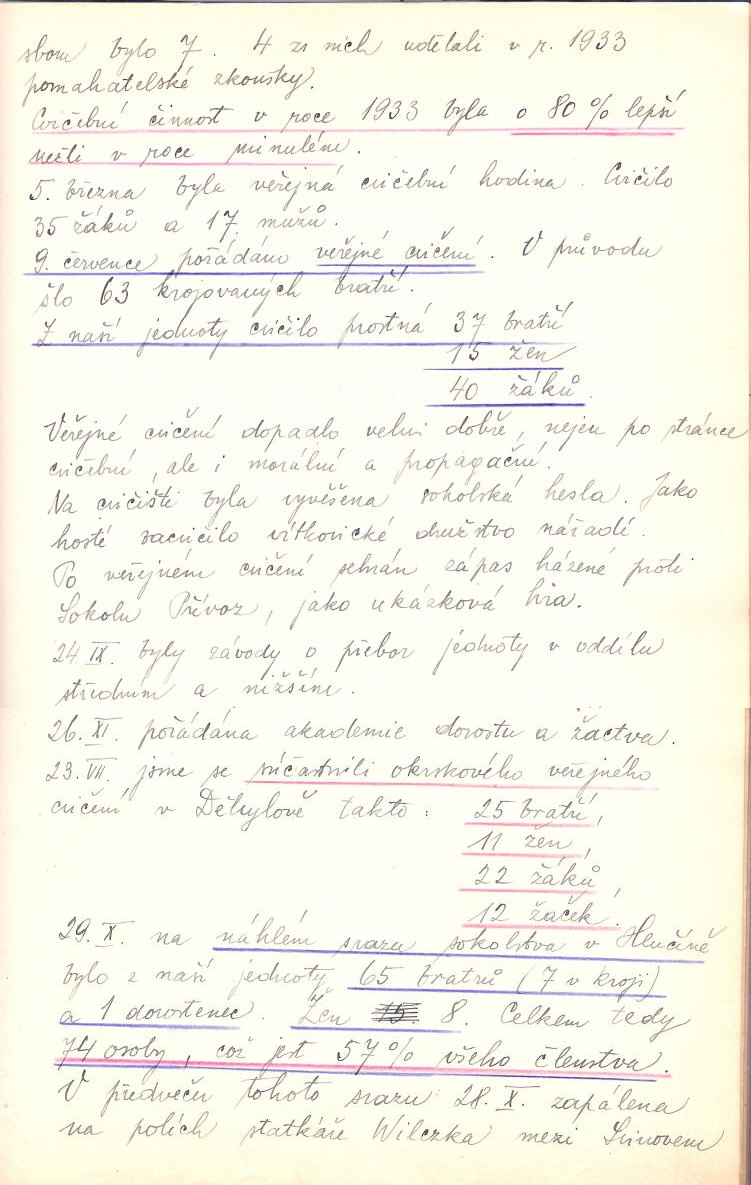 sboru bylo 7. 4 z nich udělali v r. 1933
pomahatelské zkoušky.
Cvičební činnost v roce 1933 byla o 80% lepší
nežli v roce minulém.
5. března byla veřejná cvičební hodina. Cvičilo
35 žáků a 17 mužů.
9. července pořádáno veřejné cvičení. V průvodu
šlo 63 krojovaných bratří.
Z naší jednoty cvičilo prostná 37 bratří
15 žen
40 žáků.
Veřejné cvičení dopadlo velmi dobře, nejen po stránce
cvičební, ale i morální a propagační.
Na cvičišti byla vyvěšena sokolská hesla. Jako
hosté zacvičilo vítkovické družstvo nářadí.
Po veřejném cvičení sehrán zápas házené proti
Sokolu Přívoz, jako ukázková hra.
24. IX. byly závody o přebor jednoty v oddílu
středním a nižším.
26. XI. pořádána akademie dorostu a žactva.
23. VII. jsme se súčastnili okrskového veřejného
cvičení v Děhylově takto: 25 bratří,
11 žen,
22 žáků,
12 žaček.
29. X. na náhlém srazu sokolstva v Hlučíně
bylo z naší jednoty 65 bratrů (7 v kroji)
a 1 dorostenec. Žen 15. 8. Celkem tedy
74 osoby, což jest 57% všeho členstva.
V předvečer tohoto srazu 28. X. zapálena
na polích statkáře Wilczka mezi